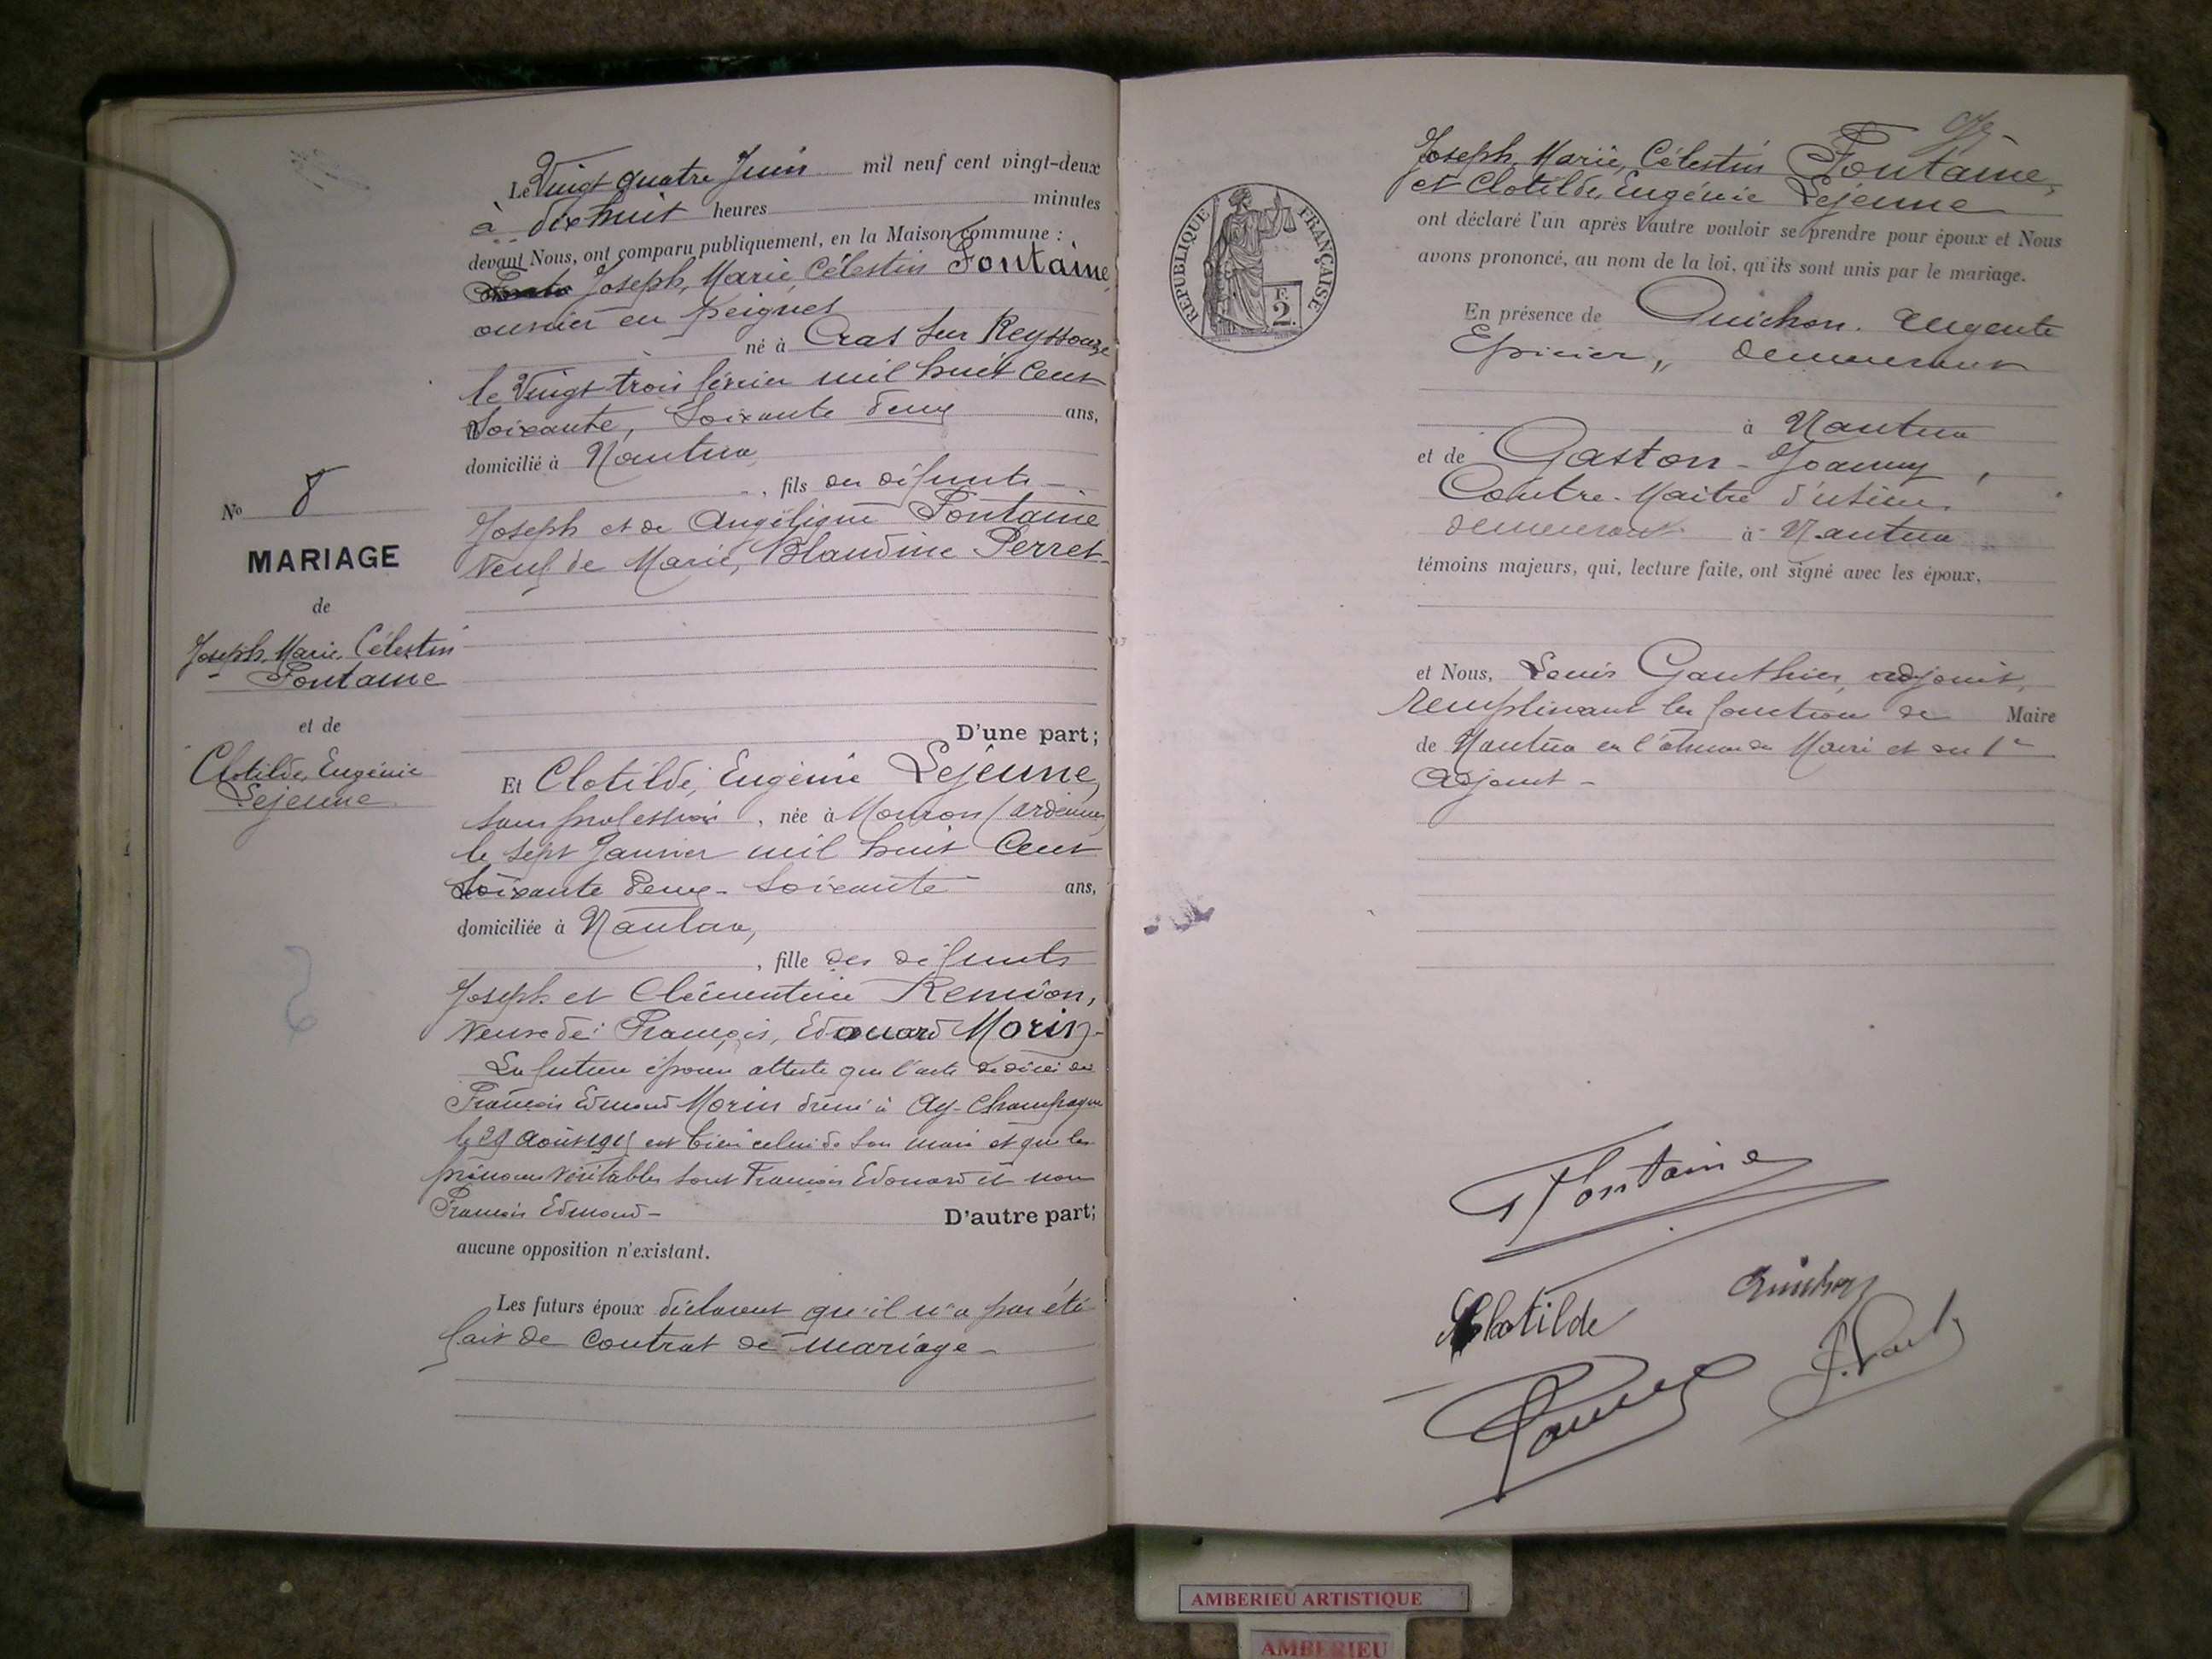 Le Vingt quatre Juin mil neuf cent vingt-deux
à dix huit heures minutes
devant Nous, ont comparu publiquement, en la Maison commune :
Joseph, Marie, Célestin Fontaine,
ouvrier en peignes
né à Cras sur Reyssouze
le Vingt trois février mil huit cent
Soixante, Soixante deux ans,
domicilié à Nantua,
, fils des défunts
Joseph et de Angélique Fontaine
Veuf de Marie, Blandine Perret
No 8
MARIAGE
de
Joseph, Marie, Célestin
Fontaine
et de
Clotilde, Eugénie
Lejeune
D'une part;
Et Clotilde, Eugénie Lejeune,
sans profession, née à Mouron (Ardennes)
le sept Janvier mil huit Cent
Soixante deux - Soixante ans,
domiciliée à Nantua,
, fille des défunts
Joseph et Clémentine Remion,
Veuve de François, Edouard Morin -
La future épouse atteste que l'acte de décès de
François Edmond Morin dressé à Ay-Champagne
le 29 Août est bien celui de son mari et que les
prénoms véritables sont François Edouard et non
François Edmond -
D'autre part;
aucune opposition n'existant.
Les futurs époux déclarent qu'il n'a pas été
fait de contrat de mariage -
REPUBLIQUE FRANÇAISE
F.
2.
Joseph, Marie, Célestin Fontaine,
et Clotilde, Eugénie Lejeune
ont déclaré l'un après l'autre vouloir se prendre pour époux et Nous
avons prononcé, au nom de la loi, qu'ils sont unis par le mariage.
En présence de Guichon
Epicier, demeurant
à Nantua
et de Gaston - Joanny,
Contre-Maitre d'usine
demeurant à Nantua
témoins majeurs, qui, lecture faite, ont signé avec les époux,
et Nous, Louis Gauthier, adjoint,
remplissant les fonctions de Maire
de Nantua en l'absence du Maire et du 1er
Adjoint -
Fontaine
Clotilde
Guichon
AMBERIEU ARTISTIQUE
AMBERIEU